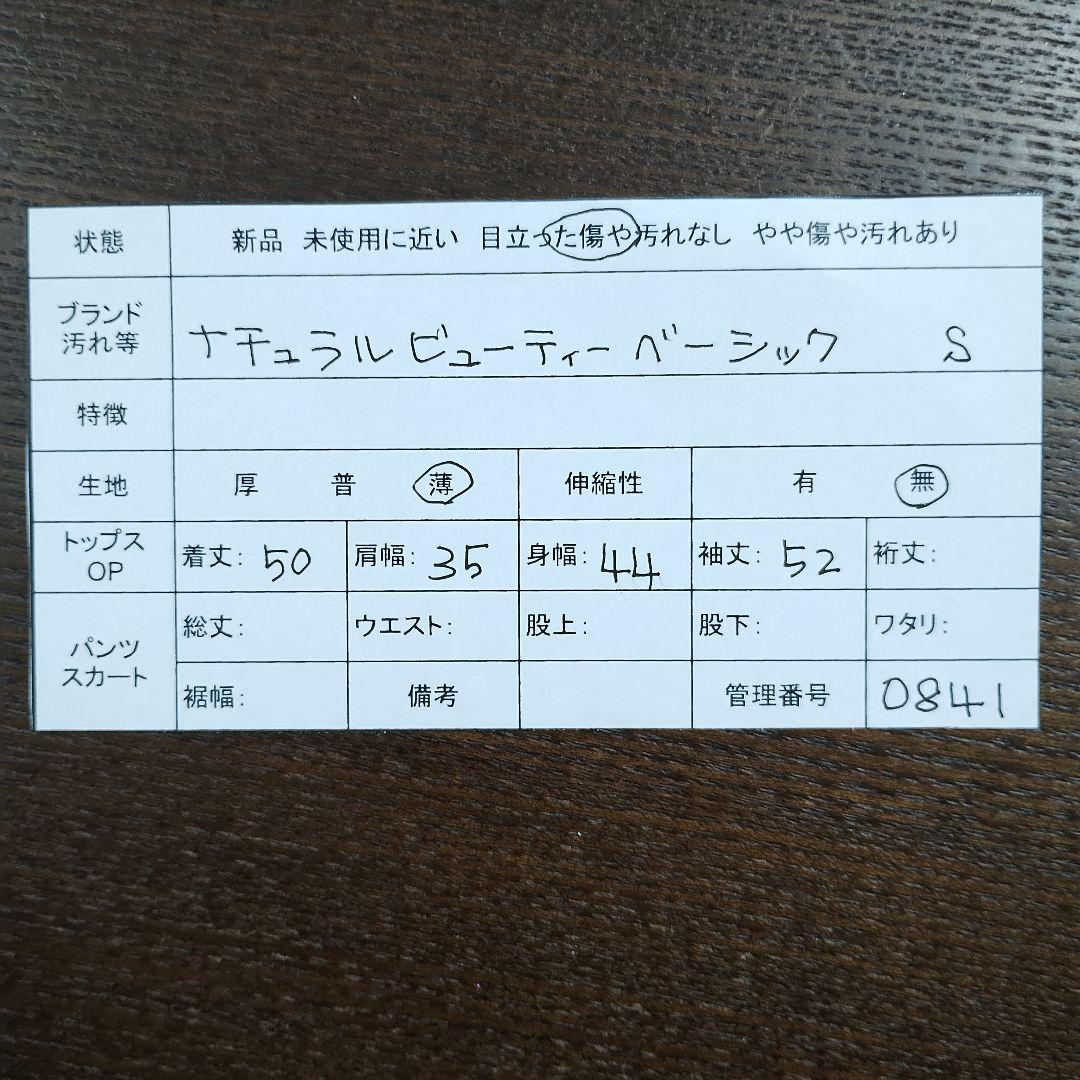 状態 新品 未使用に近い 目立った傷や汚れなし やや傷や汚れあり
ブランド
汚れ等
ナチュラルビューティーベーシック S
特徴
生地 厚 普 薄 伸縮性 有 無
トップス
OP
着丈: 50 肩幅: 35 身幅: 44 袖丈: 52 裄丈:
パンツ
スカート
総丈: ウエスト: 股上: 股下: ワタリ:
裾幅: 備考 管理番号 0841